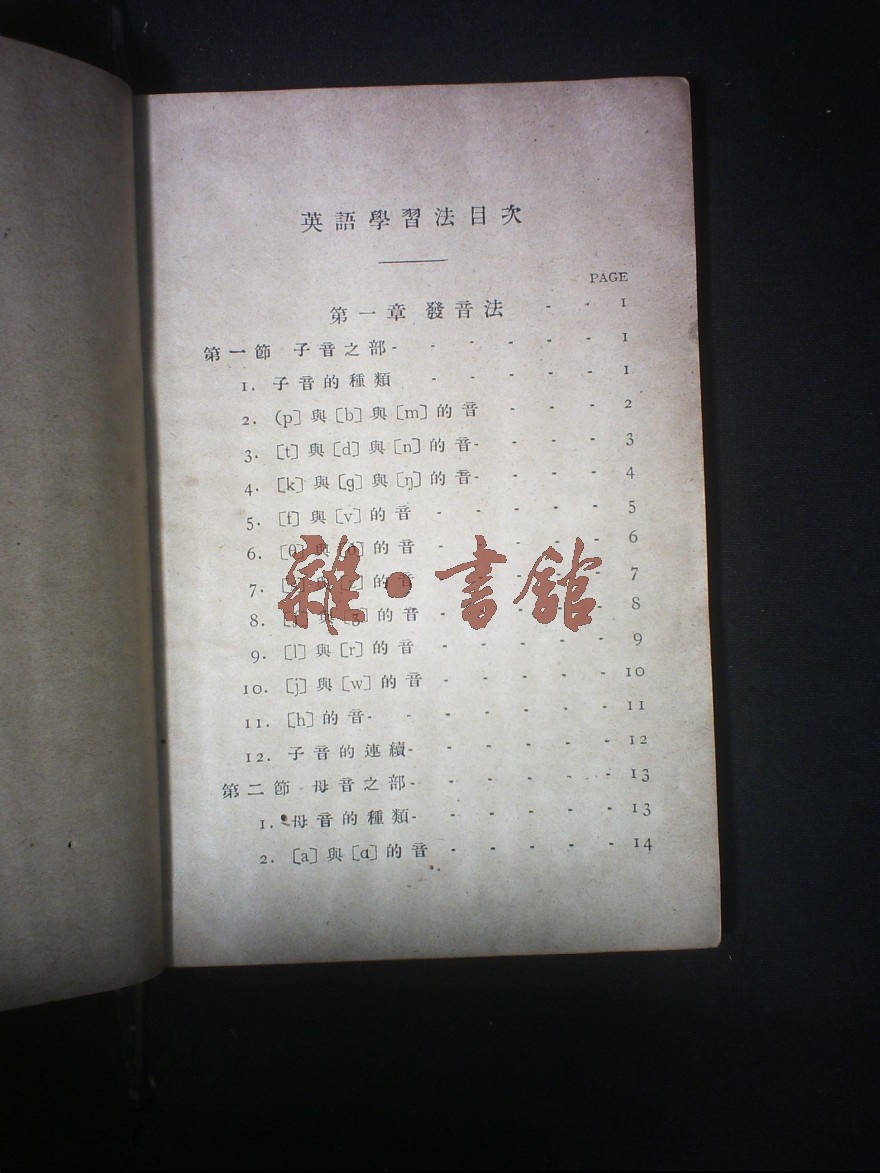 英語學習法目次
PAGE
第一章 發音法 - - 1
第一節 子音之部 - - - - - - 1
1. 子音的種類 - - - - - 1
2. (p]與[b]與[m]的音 - - - 2
3. [t]與[d]與[n]的音 - - - - 3
4. [k]與[g]與[ŋ]的音 - - - - 4
5. [f]與[v]的音 - - - - - 5
6. [θ]與[ð]的音 - - - - - 6
7. 與 的音 - - - - - 7
8. 與[ʒ]的音 - - - - - 8
9. [l]與[r]的音 - - - - - 9
10. [j]與[w]的音 - - - - 10
11. [h]的音 - - - - - - - 11
12. 子音的連續 - - - - - - 12
第二節 母音之部 - - - - - - 13
1. 母音的種類 - - - - - - 13
2. [a]與[ɑ]的音 - - - - - 14
雜·書館